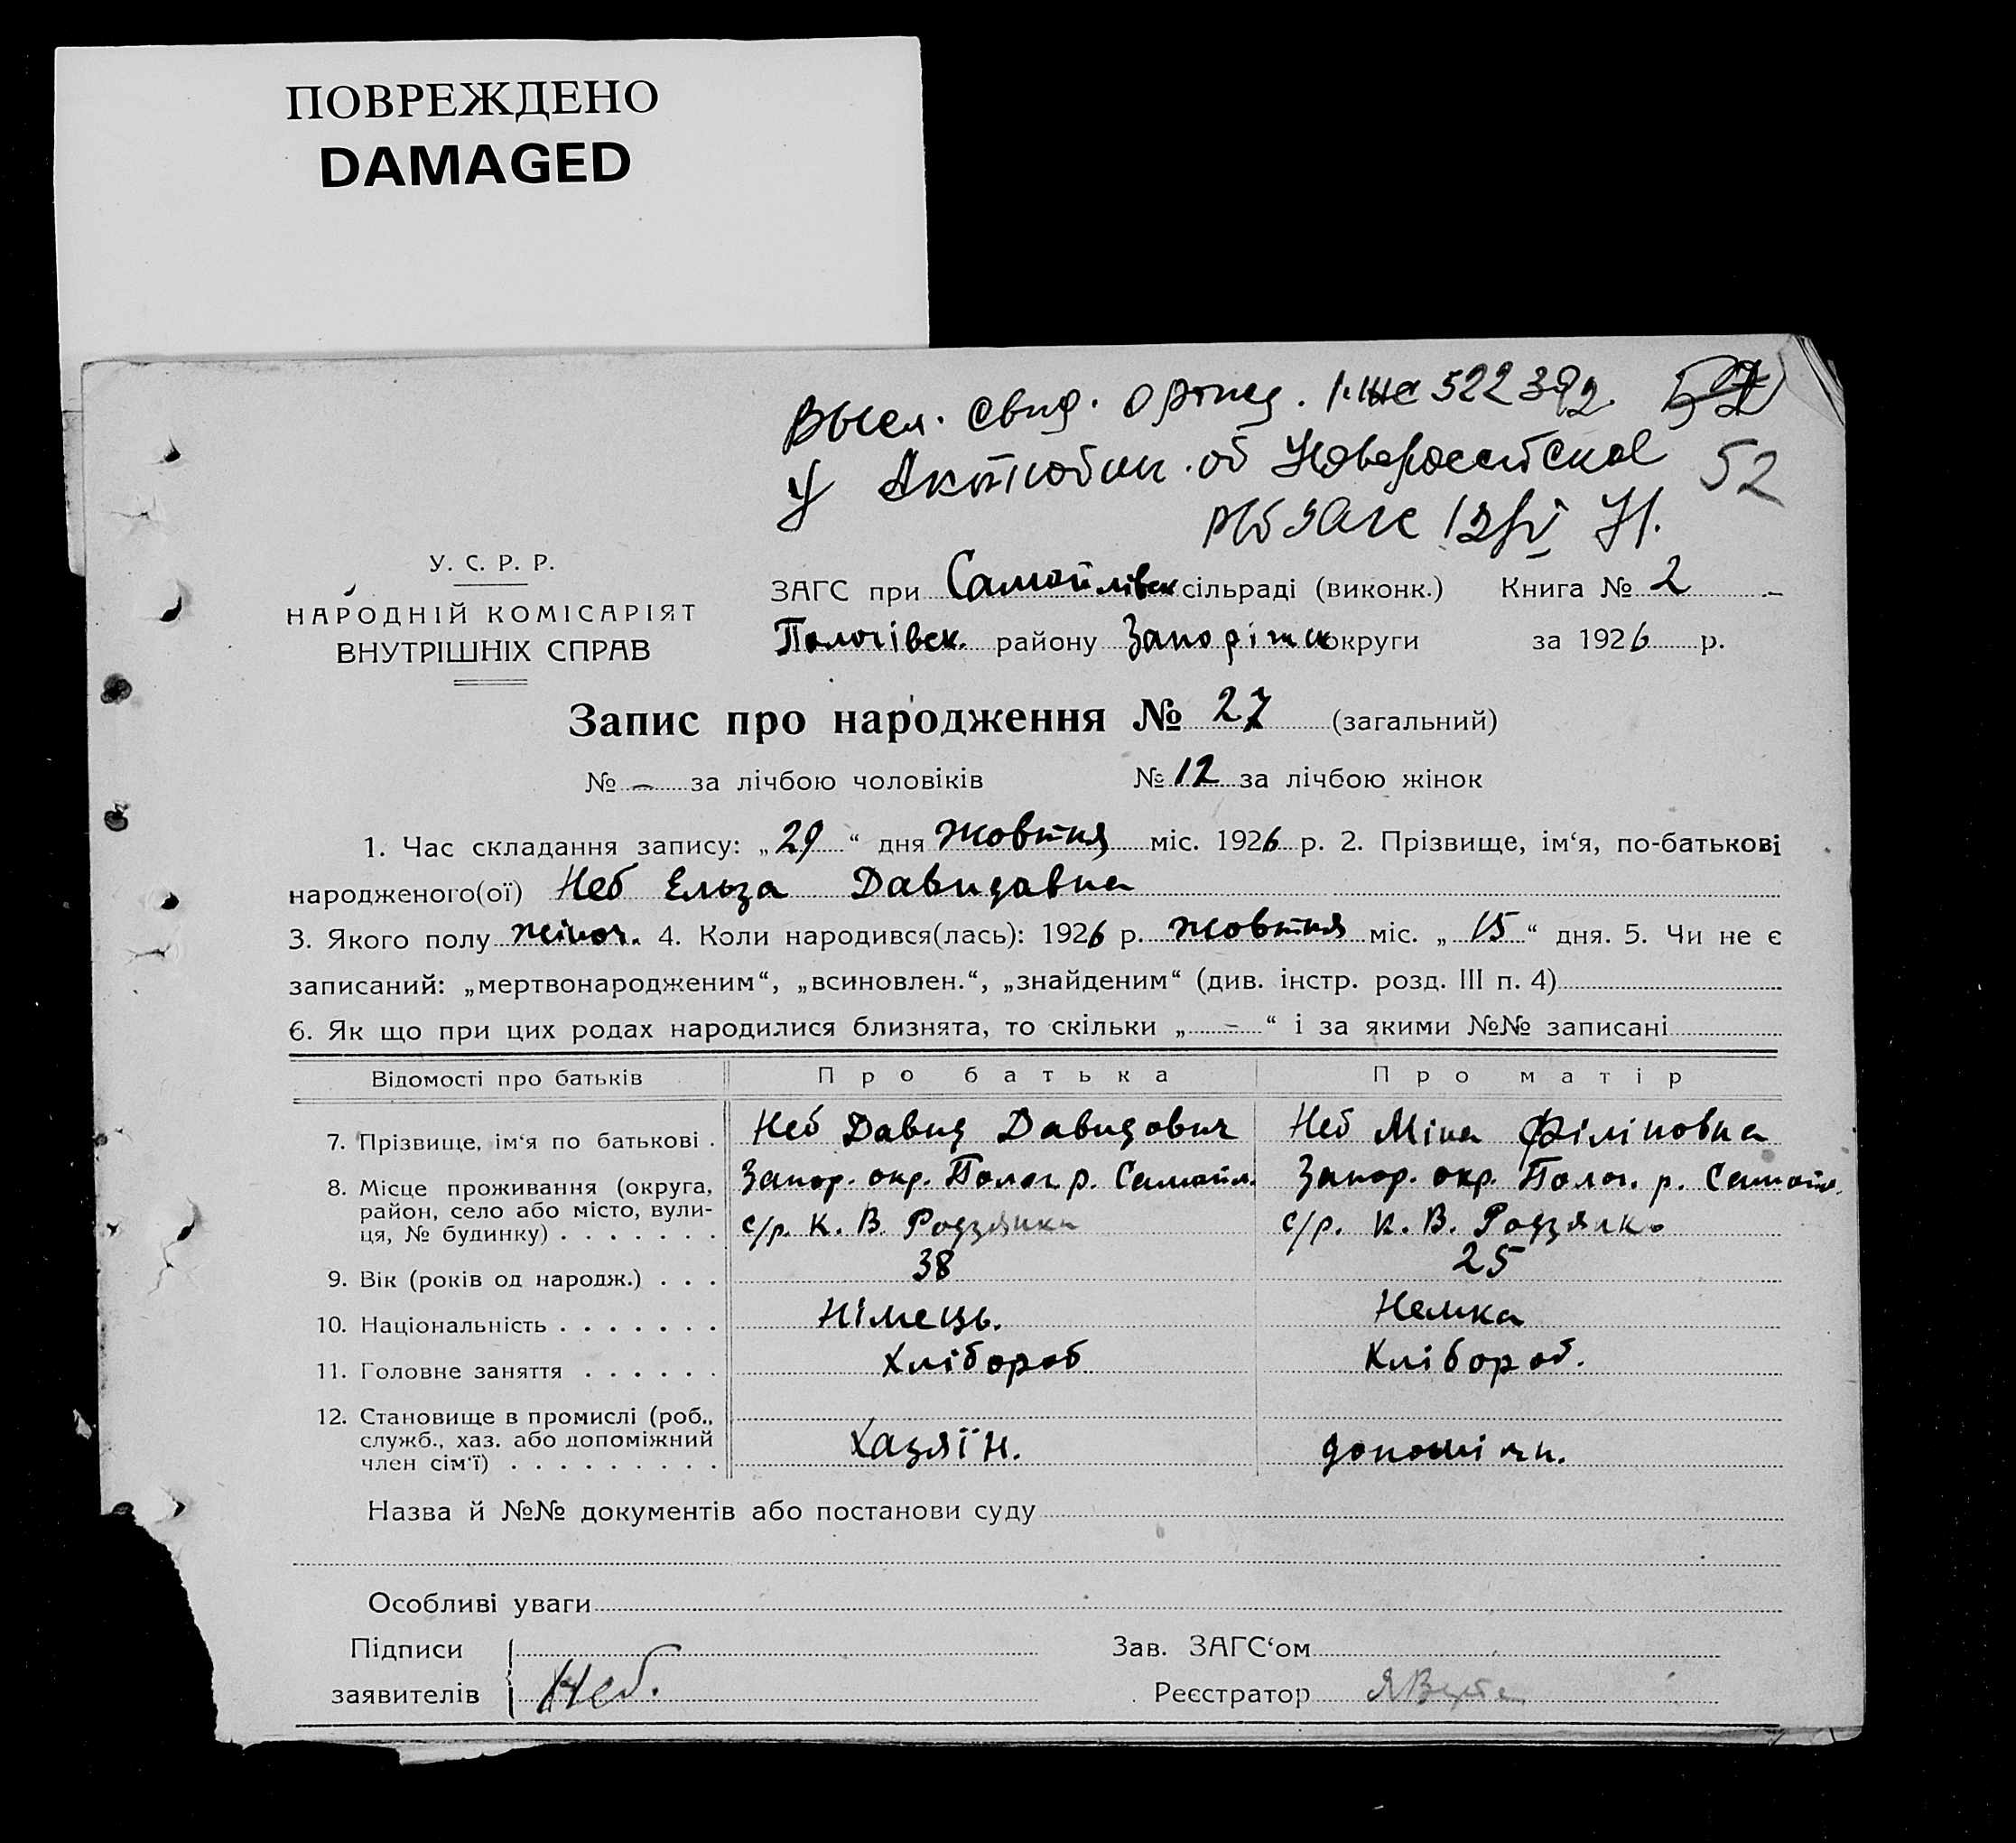 ПОВРЕЖДЕНО
DAMAGED
Высл. свид. о
522392. 52
У Актюбин. об Новороссийское 52
ЗАГС
У. С. Р. Р.
НАРОДНІЙ КОМІСАРІЯТ
ВНУТРІШНІХ СПРАВ
ЗАГС при Самойлівск сільраді (виконк.) Книга № 2
Пологівск. району Запоріжск округи за 1926 р.
Запис про народження № 27 (загальний)
№ – за лічбою чоловіків № 12 за лічбою жінок
1. Час складання запису: „29“ дня жовтня міс. 1926 р. 2. Прізвище, ім‘я, по-батькові
народженого(ої) Неб Ельза Давидавна
3. Якого полу жіноч. 4. Коли народився(лась): 1926 р. жовтня міс. „15“ дня. 5. Чи не є
записаний: „мертвонародженим“, „всиновлен.“, „знайденим“ (див. інстр. розд. III п. 4)
6. Як що при цих родах народилися близнята, то скільки „–“ і за якими №№ записані
Відомості про батьків Про батька Про матір
7. Прізвище, ім‘я по батькові . Неб Давид Давидович Неб Міна Філіповна
8. Місце проживання (округа, район, село або місто, вули-ця, № будинку) . . . . . . . Запор. окр. Полог. р. Самойл. с/р. К. В. Родзянка Запор. окр. Полог. р. Самойл. с/р. К. В. Родзянко
9. Вік (років од народж.) . . . 38 25
10. Національність . . . . . . . Німець. Немка
11. Головне заняття . . . . . . Хлібороб Хлібороб.
12. Становище в промислі (роб., служб., хаз. або допоміжний член сім‘ї) . . . . . . . . . Хазяїн. допоміжн.
Назва й №№ документів або постанови суду
Особливі уваги
Підписи Зав. ЗАГС‘ом
заявителів Неб. Реєстратор